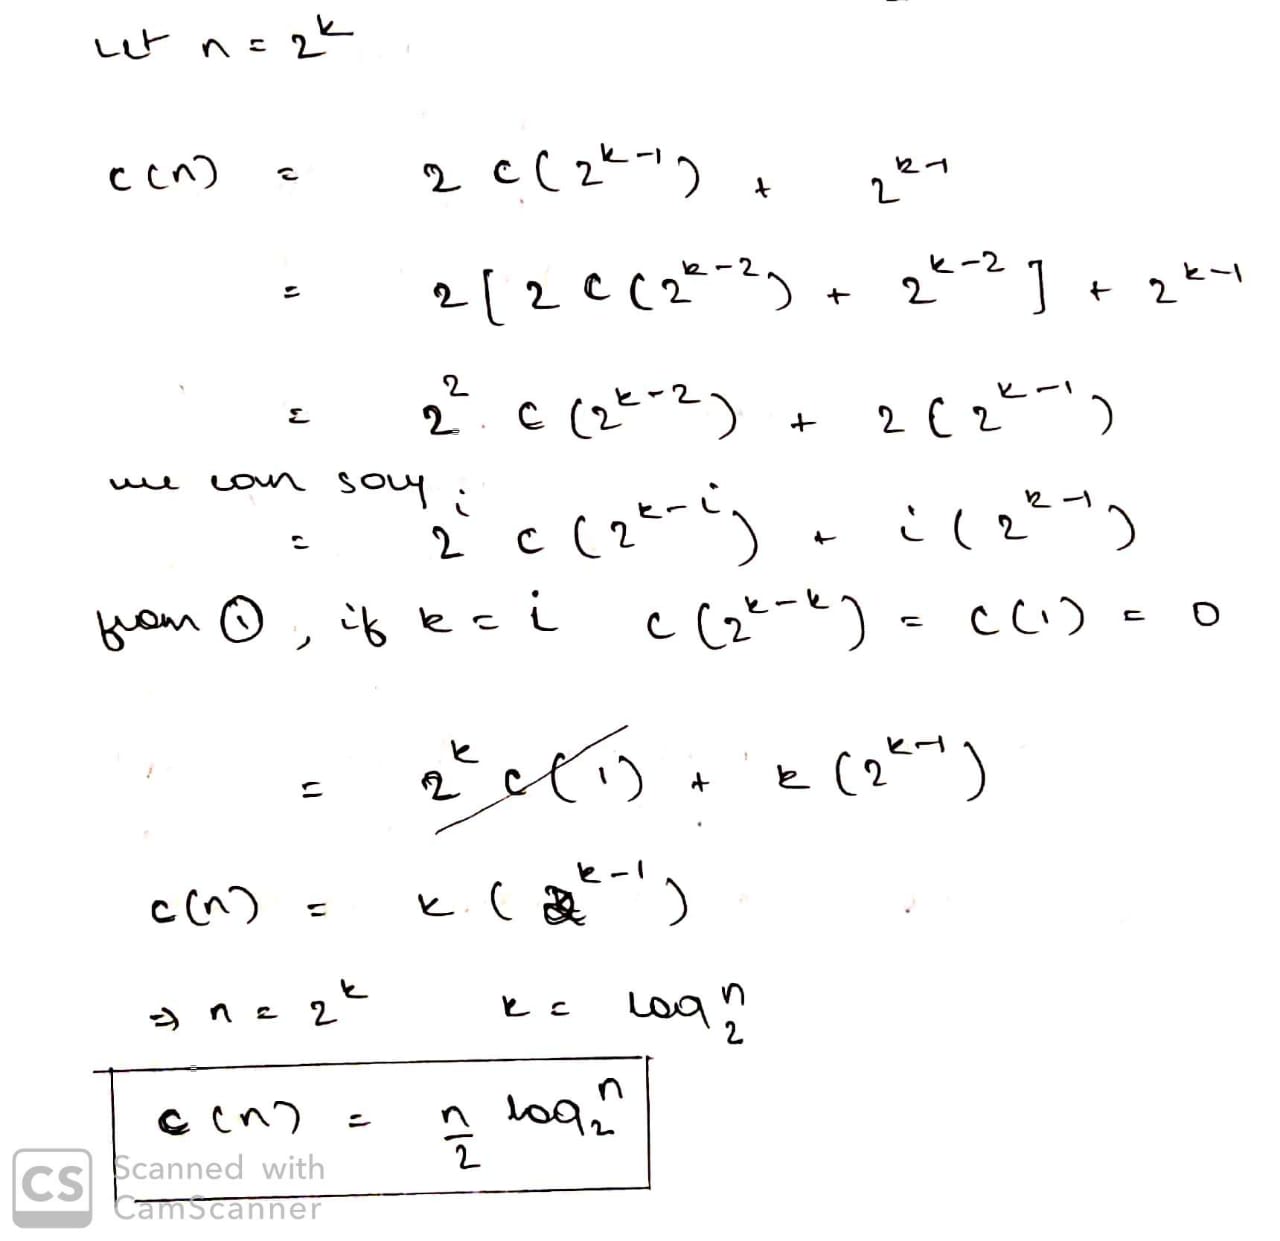 Let n = 2^k
c(n) = 2 c(2^{k-1}) + 2^{k-1}
= 2[2 c(2^{k-2}) + 2^{k-2}] + 2^{k-1}
= 2^2. c(2^{k-2}) + 2(2^{k-1})
we can say
= 2^i c(2^{k-i}) + i(2^{k-1})
from ①, if k = i c(2^{k-k}) = c(1) = 0
= 2^k c(1) + k(2^{k-1})
c(n) = k.(2^{k-1})
⇒ n = 2^k k = log_2^n
c(n) = n/2 log_2^n
CS Scanned with
CamScanner